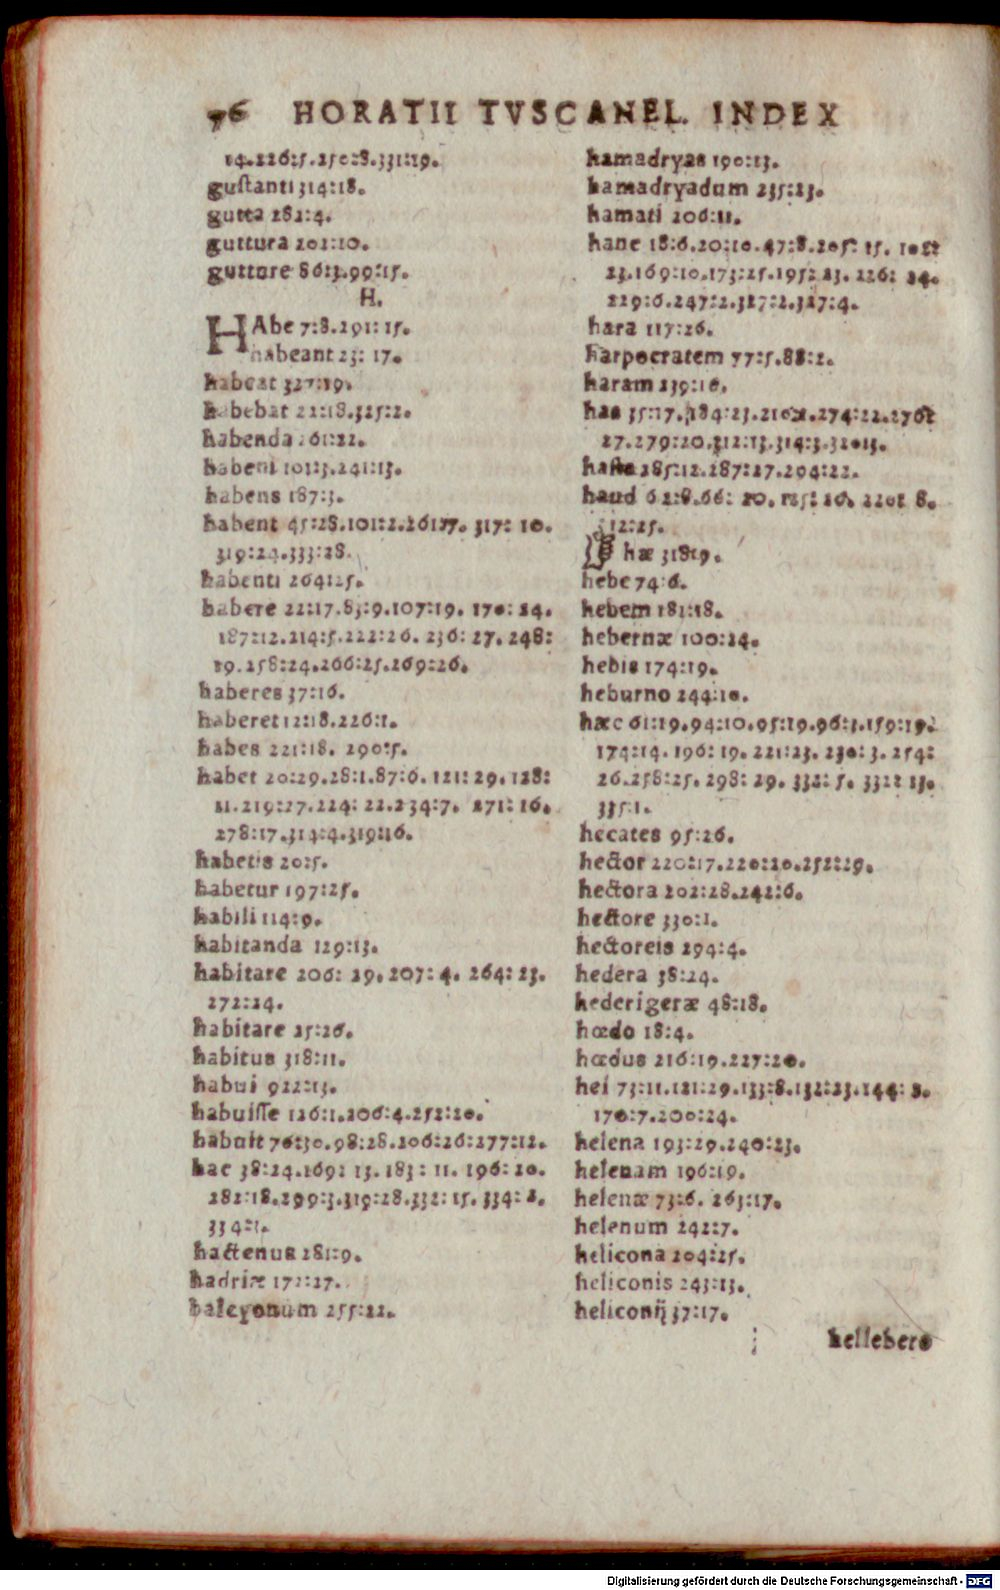 76 HORATII TVSCANEL. INDEX
14.226:5.250:8.331:19.
gustanti 314:18.
gutta 282:4.
guttura 202:10.
gutture 86:3.99:15.
H.
HAbe 7:8.291:15.
habeant 23: 17.
habeat 327:19.
habebat 22:18.325:2.
habenda 261:22.
habeni 103:3.241:13.
habens 187:3.
habent 45:28.101:2.261:7. 317: 10.
319:24.333:28.
habenti 264:25.
habere 22:17.83:9.107:19. 170: 24.
187:12.214:5.222:26. 236: 27. 248:
19.258:24.266:25.269:26.
haberes 37:16.
haberet 12:18.226:1.
habes 221:18. 290:5.
habet 20:29.28:1.87:6. 121: 29. 128:
11.219:27.224: 22.234:7. 271: 16.
278:17.314:4.319:16.
habetis 20:5.
habetur 197:25.
habili 114:9.
habitanda 129:13.
habitare 206: 29. 207: 4. 264: 23.
272:24.
habitare 25:26.
habitus 318:11.
habui 922:13.
habuisse 126:1.206:4.252:20.
habuit 76:30.98:28.206:26:277:12.
hac 38:24.169: 13. 183: 11. 196: 20.
282:18.299:3.319:28.332: 15. 334: 2.
334:1.
hactenus 281:9.
hadriæ 172:27.
halcyonum 255:22.
hamadryas 190:13.
hamadryadum 235:23.
hamati 206:11.
hanc 18:6.20:10.47:8.205: 15.
23.169:10.173:25.195: 23. 226: 24.
229:6.247:2.317:2.327:4.
hara 117:26.
harpocratem 77:5.88:2.
haram 239:16.
has 35:17.184:23. .274:22.276:
27.279:20.312:13.314:3.
hasta 285:12.287:27.294:22.
haud 62:8.66: 20. 125: 26. 220: 8.
312:25.
hæ 318:9.
hebe 74:6.
hebem 181:18.
hebernæ 100:24.
hebis 174:19.
heburno 244:10.
hæc 61:19.94:10.95:19.96:1.159:19.
174:14. 196: 19. 221:23. 230: 3. 254:
26.258:25. 298: 29. 332: 5. 332: 13.
335:1.
hecates 95:26.
hector 220:17.220:20.252:29.
hectora 202:28.242:6.
hectore 330:1.
hectoreis 294:4.
hedera 38:24.
hederigeræ 48:18.
hœdo 18:4.
hœdus 216:19.227:20.
hei 73:11.121:29.133:8.132:23.144: 3.
170:7.200:24.
helena 193:29.240:23.
helenam 196:19.
helenæ 73:6. 263:17.
helenum 242:7.
helicona 204:25.
heliconis 243:13.
heliconij 37:17.
hellebero
Digitalisierung gefördert durch die Deutsche Forschungsgemeinschaft - DFG